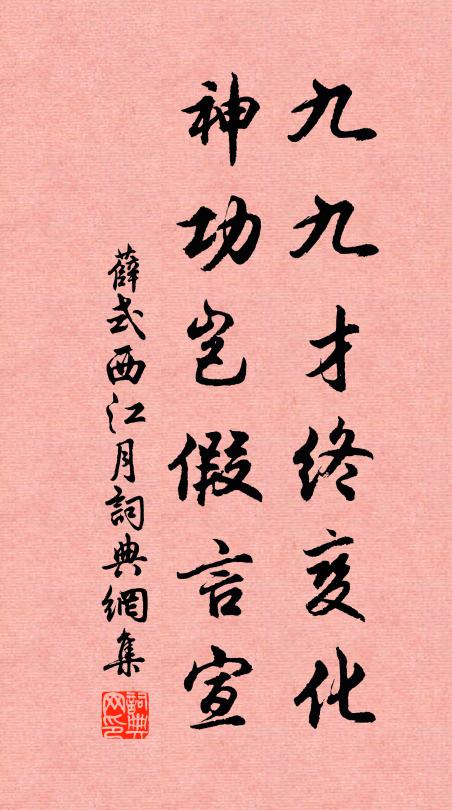 九九才终变化
神功岂假言宣
薛式西江月詞典網集
詞典网印